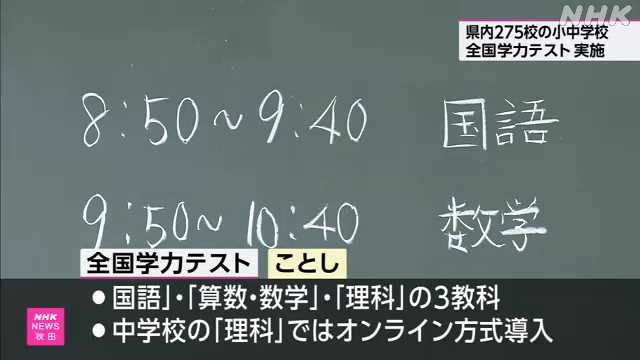 NHK
県内275校の小中学校
全国学力テスト 実施
8:50～9:40 国語
9:50～10:40 数学
全国学力テスト ことし
●国語」・「算数・数学」・「理科」の3教科
●中学校の「理科」ではオンライン方式導入
NHK
NEWS
秋田